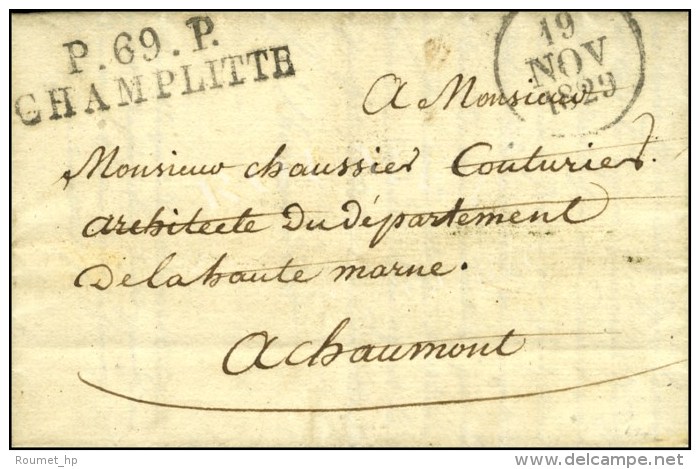 P.69.P.
CHAMPLITTE
19
NOV
1829
A Monsieur
Monsieur chaussier Couturier.
architecte Du département
De la haute marne.
A chaumont
Roumet_hp
delcampe.net